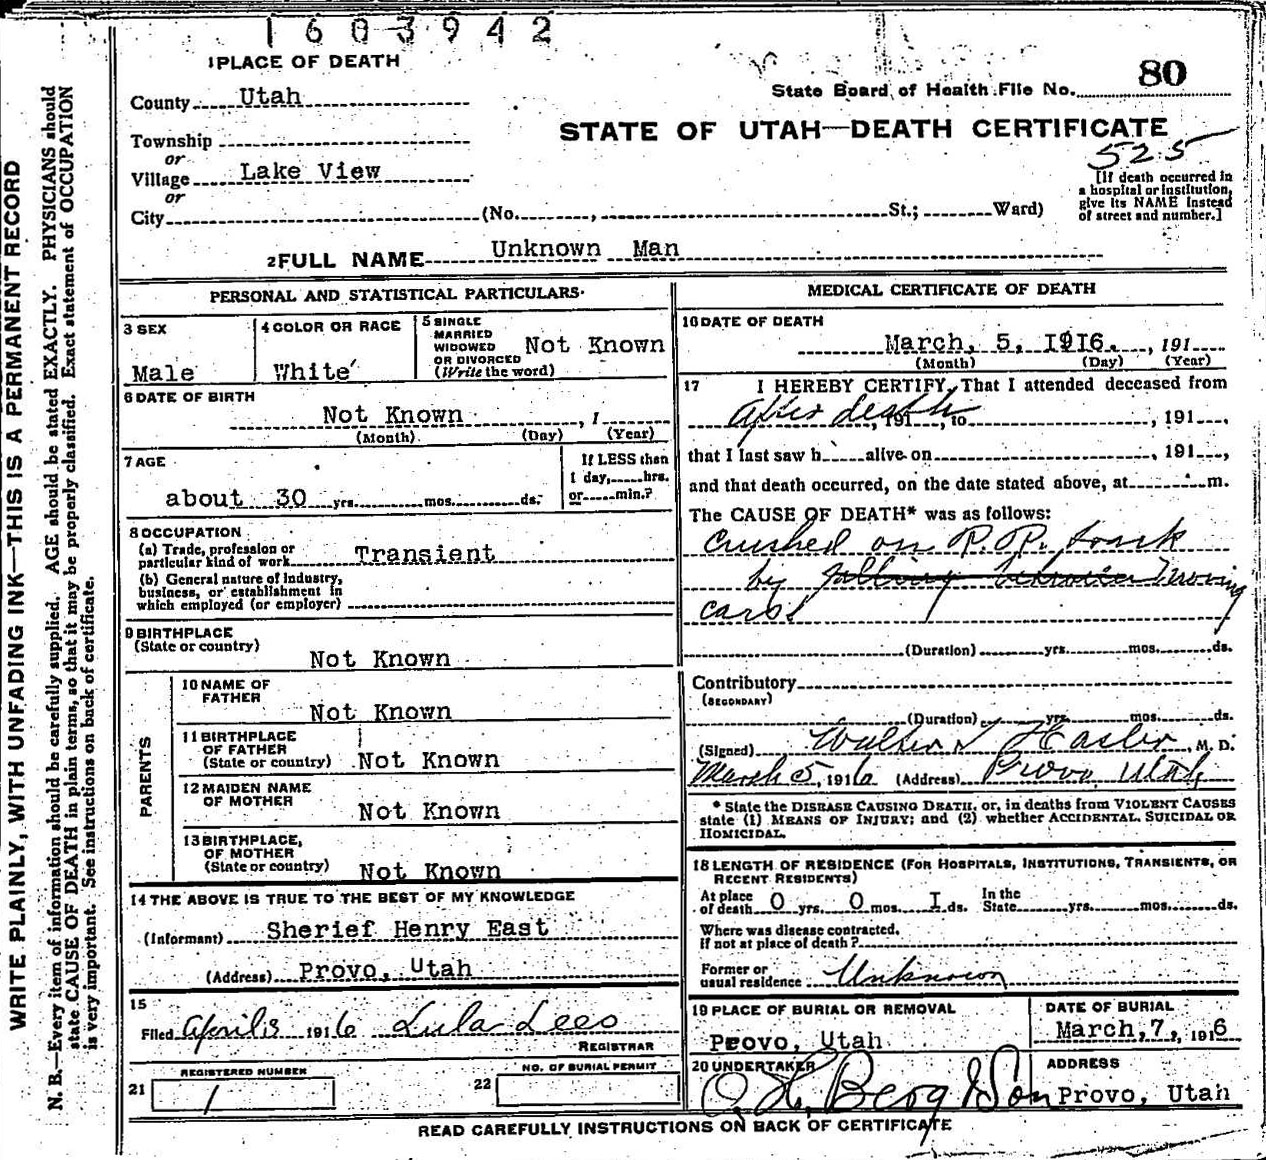 1603942
1 PLACE OF DEATH
County Utah
Township
or
Village Lake View
or
City (No. , St.; Ward)
State Board of Health File No. 80
STATE OF UTAH—DEATH CERTIFICATE
525
[If death occurred in
a hospital or institution,
give its NAME instead
of street and number.]
2 FULL NAME Unknown Man
PERSONAL AND STATISTICAL PARTICULARS
3 SEX
Male
4 COLOR OR RACE
White
5 SINGLE
MARRIED
WIDOWED
OR DIVORCED
(Write the word)
Not Known
6 DATE OF BIRTH
Not Known , 1
(Month) (Day) (Year)
7 AGE
about 30 yrs. mos. ds.
If LESS than
1 day, hrs.
or min.?
8 OCCUPATION
(a) Trade, profession or
particular kind of work Transient
(b) General nature of Industry,
business, or establishment in
which employed (or employer)
9 BIRTHPLACE
(State or country)
Not Known
PARENTS
10 NAME OF
FATHER
Not Known
11 BIRTHPLACE
OF FATHER
(State or country) Not Known
12 MAIDEN NAME
OF MOTHER
Not Known
13 BIRTHPLACE,
OF MOTHER
(State or country) Not Known
14 THE ABOVE IS TRUE TO THE BEST OF MY KNOWLEDGE
(Informant) Sherief Henry East
(Address) Provo, Utah
15
Filed April 3 1916 Lula Lees
REGISTRAR
21 REGISTERED NUMBER
1
22 NO. OF BURIAL PERMIT
MEDICAL CERTIFICATE OF DEATH
16 DATE OF DEATH
March, 5, 1916. , 191
(Month) (Day) (Year)
17 I HEREBY CERTIFY, That I attended deceased from
After death, 191 , to , 191 ,
that I last saw h alive on , 191 ,
and that death occurred, on the date stated above, at m.
The CAUSE OF DEATH* was as follows:
Crushed on R.R. track
by falling between moving
cars
(Duration) yrs. mos. ds.
Contributory
(SECONDARY)
(Duration) yrs. mos. ds.
(Signed) Walter T Hasler, M. D.
March 5, 1916 (Address) Provo Utah
* State the DISEASE CAUSING DEATH, or, in deaths from VIOLENT CAUSES
state (1) MEANS OF INJURY; and (2) whether ACCIDENTAL, SUICIDAL OR
HOMICIDAL.
18 LENGTH OF RESIDENCE (FOR HOSPITALS, INSTITUTIONS, TRANSIENTS, OR
RECENT RESIDENTS)
At place
of death 0 yrs. 0 mos. I ds.
In the
State yrs. mos. ds.
Where was disease contracted,
If not at place of death?
Former or
usual residence Unknown
19 PLACE OF BURIAL OR REMOVAL
Provo, Utah
DATE OF BURIAL
March, 7, 1916
20 UNDERTAKER
O. H. Berg & Son
ADDRESS
Provo, Utah
READ CAREFULLY INSTRUCTIONS ON BACK OF CERTIFICATE
WRITE PLAINLY, WITH UNFADING INK—THIS IS A PERMANENT RECORD
N. B.—Every item of information should be carefully supplied. AGE should be stated EXACTLY. PHYSICIANS should
state CAUSE OF DEATH in plain terms, so that it may be properly classified. Exact statement of OCCUPATION
is very important. See instructions on back of certificate.